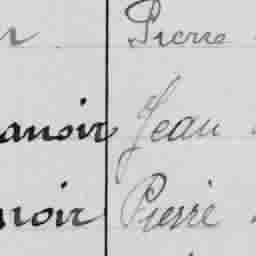 Pierre
anoir Jean
noir Pierre